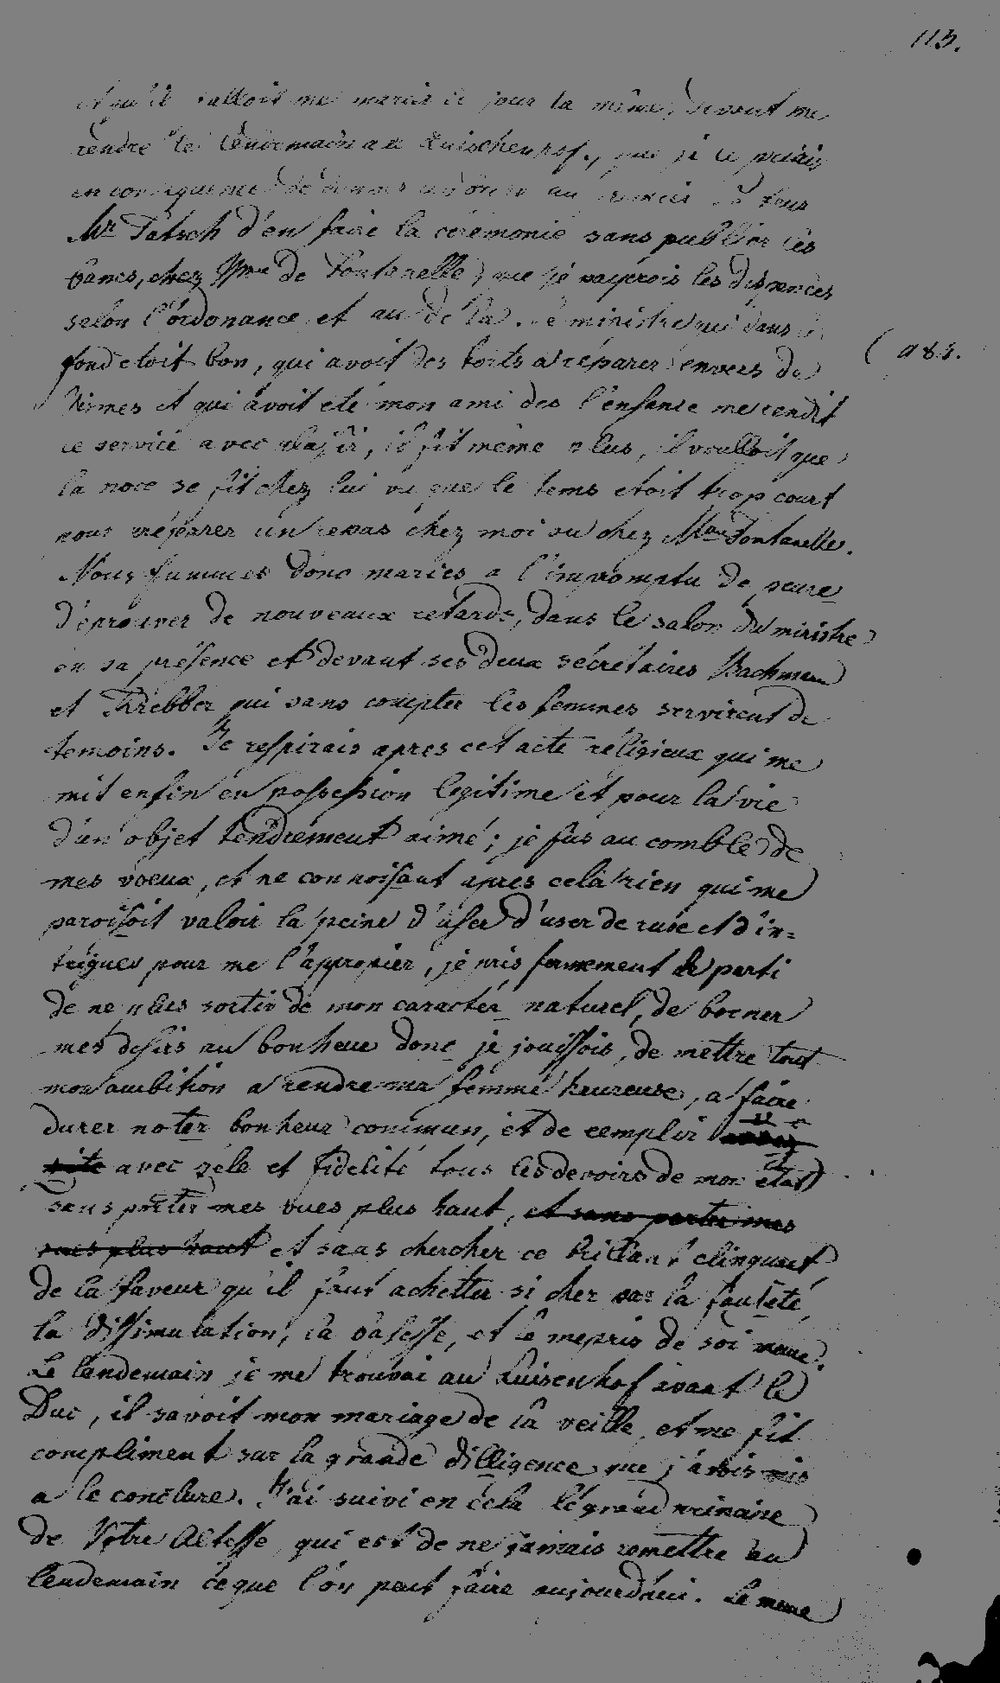 113.
et qu'il falloit me marier ce jour la même, devant me
rendre le lendemain au Luischenhof, que je le priais
en consequence de donner un ordre au
Mr. Patsch d'en faire la ceremonie sans publier les
bancs, chez Mme de Fontanelle, que je payerois les dispences
selon l'ordonance et au de la. Le ministre qui dans le
fond etoit bon, qui avoit des torts a réparer envers de
Nismes et qui avoit eté mon ami des l'enfance me rendit
ce service avec plaisir, il fit même plus, il voulloit que
la noce se fit chez lui vu que le tems etoit trop court
pour préparer un repas chez moi ou chez Mme Fontanelle.
Nous fummes donc mariés a l'impromptu de peure
d'éprouver de nouveaux retards, dans le salon du ministre
en sa présence et devant ses deux sécrétaires Bachman
et Krebber qui sans compter les femmes servirent de
temoins. Je respirais apres cet acte réligieux qui me
mit enfin en possession legitime et pour la vie
d'un objet tendrement aimé; je fus au comble de
mes voeux, et ne connoissant apres cela rien qui me
paroissoit valoir la peine d'user d'user de ruse et d'in=
trigues pour me l'approprier, je pris fermement le parti
de ne plus sortir de mon caracter naturel, de borner
mes desirs au bonheur donc je jouissois, de mettre tout
mon ambition a rendre ma femme heureuse, a faire
durer noter bonheur commun, et de remplir
avec zéle et fidelité tous les devoirs de mon état
sans porter mes vues plus haut, et sans porter mes
vues plus haut et sans chercher ce brillant clinquant
de la faveur qu'il faut achetter si cher par la fausseté,
la dissimulation, la bassesse, et le mepris de soi meme.
Le lendemain je me trouvai au Luisenhof avant le
Duc, il savoit mon mariage de la veille, et me fit
compliment sur la grande dilligence que j'avois mis
a le conclure. J'ai suivi en cela le grand principe
de Votre Altesse, qui est de ne jamais remettre au
lendemain ce que l'on peut faire aujourdhui. Le meme